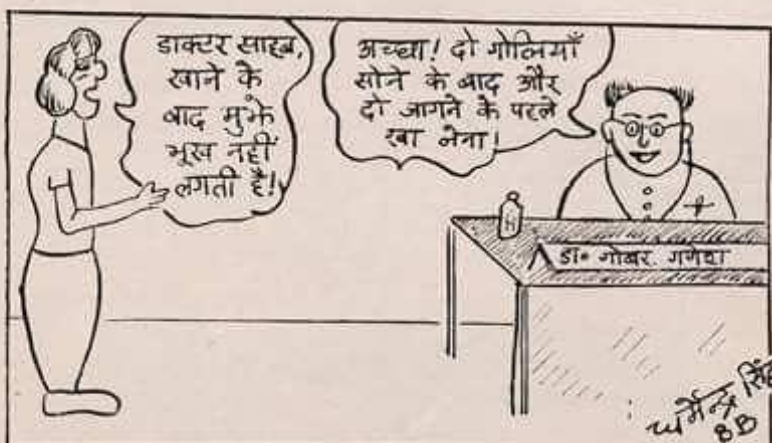 डाक्टर साहब,
खाने के
बाद मुझे
भूख नहीं
लगती है!
अच्छा! दो गोलियाँ
सोने के बाद और
दो जागने के पहले
खा लेना!
डा॰ गोबर गणेश
धर्मेन्द्र सिंह
8B